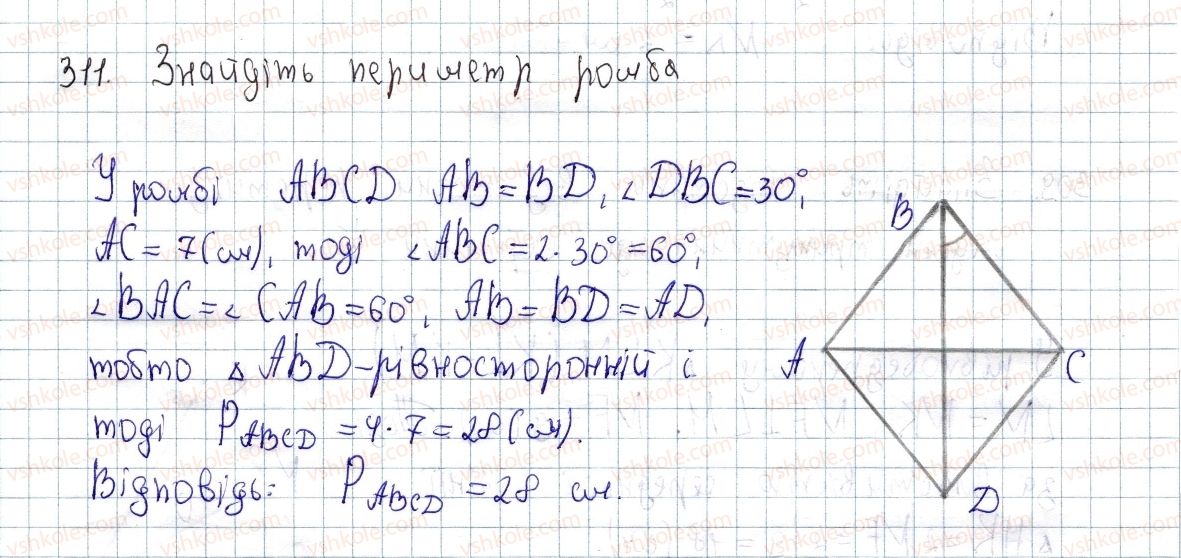 311. Знайдіть периметр ромба
У ромбі ABCD AB = BD, ∠DBC = 30°,
AC = 7(см), тоді ∠ABC = 2·30° = 60°,
∠BAC = ∠CAB = 60°, AB = BD = AD,
тобто △ABD - рівносторонній і
тоді P ABCD = 4·7 = 28 (см).
Відповідь: P ABCD = 28 см.
B
A
C
D
vshkole.com